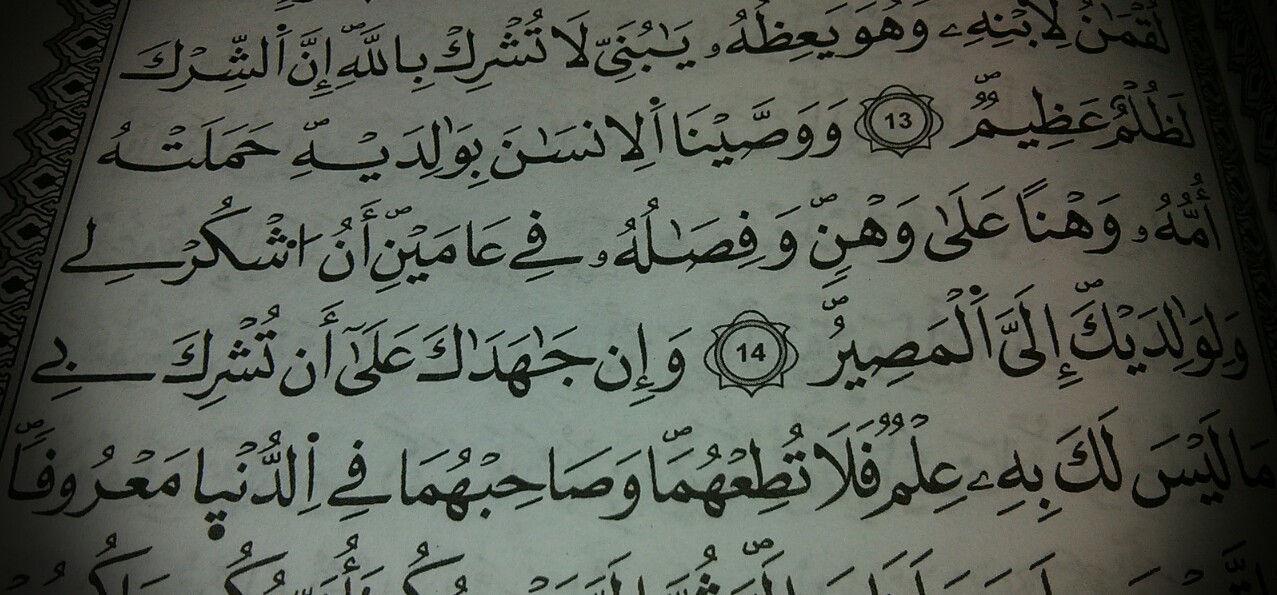 لُقْمَٰنُ لِابْنِهِۦ وَهُوَ يَعِظُهُۥ يَٰبُنَيِّ لَا تُشْرِكْ بِاللَّهِ إِنَّ اَ۬لشِّرْكَ
لَظُلْمٌ عَظِيمٌۖ 13 وَوَصَّيْنَا اَ۬لِانسَٰنَ بِوَٰلِدَيْهِۖ حَمَلَتْهُ
أُمُّهُۥ وَهْناً عَلَىٰ وَهْنٖۖ وَفِصَٰلُهُۥ فِے عَامَيْنِۖ أَنُ اُ۟شْكُرْ لِے
وَلِوَٰلِدَيْكَۖ إِلَيَّ اَ۬لْمَصِيرُۖ 14 وَإِن جَٰهَدَٰكَ عَلَىٰٓ أَن تُشْرِكَ بِے
مَا لَيْسَ لَكَ بِهِۦ عِلْمٌ فَلَا تُطِعْهُمَاۖ وَصَاحِبْهُمَا فِے اِ۬لدُّنْيَا مَعْرُوفاًۖ